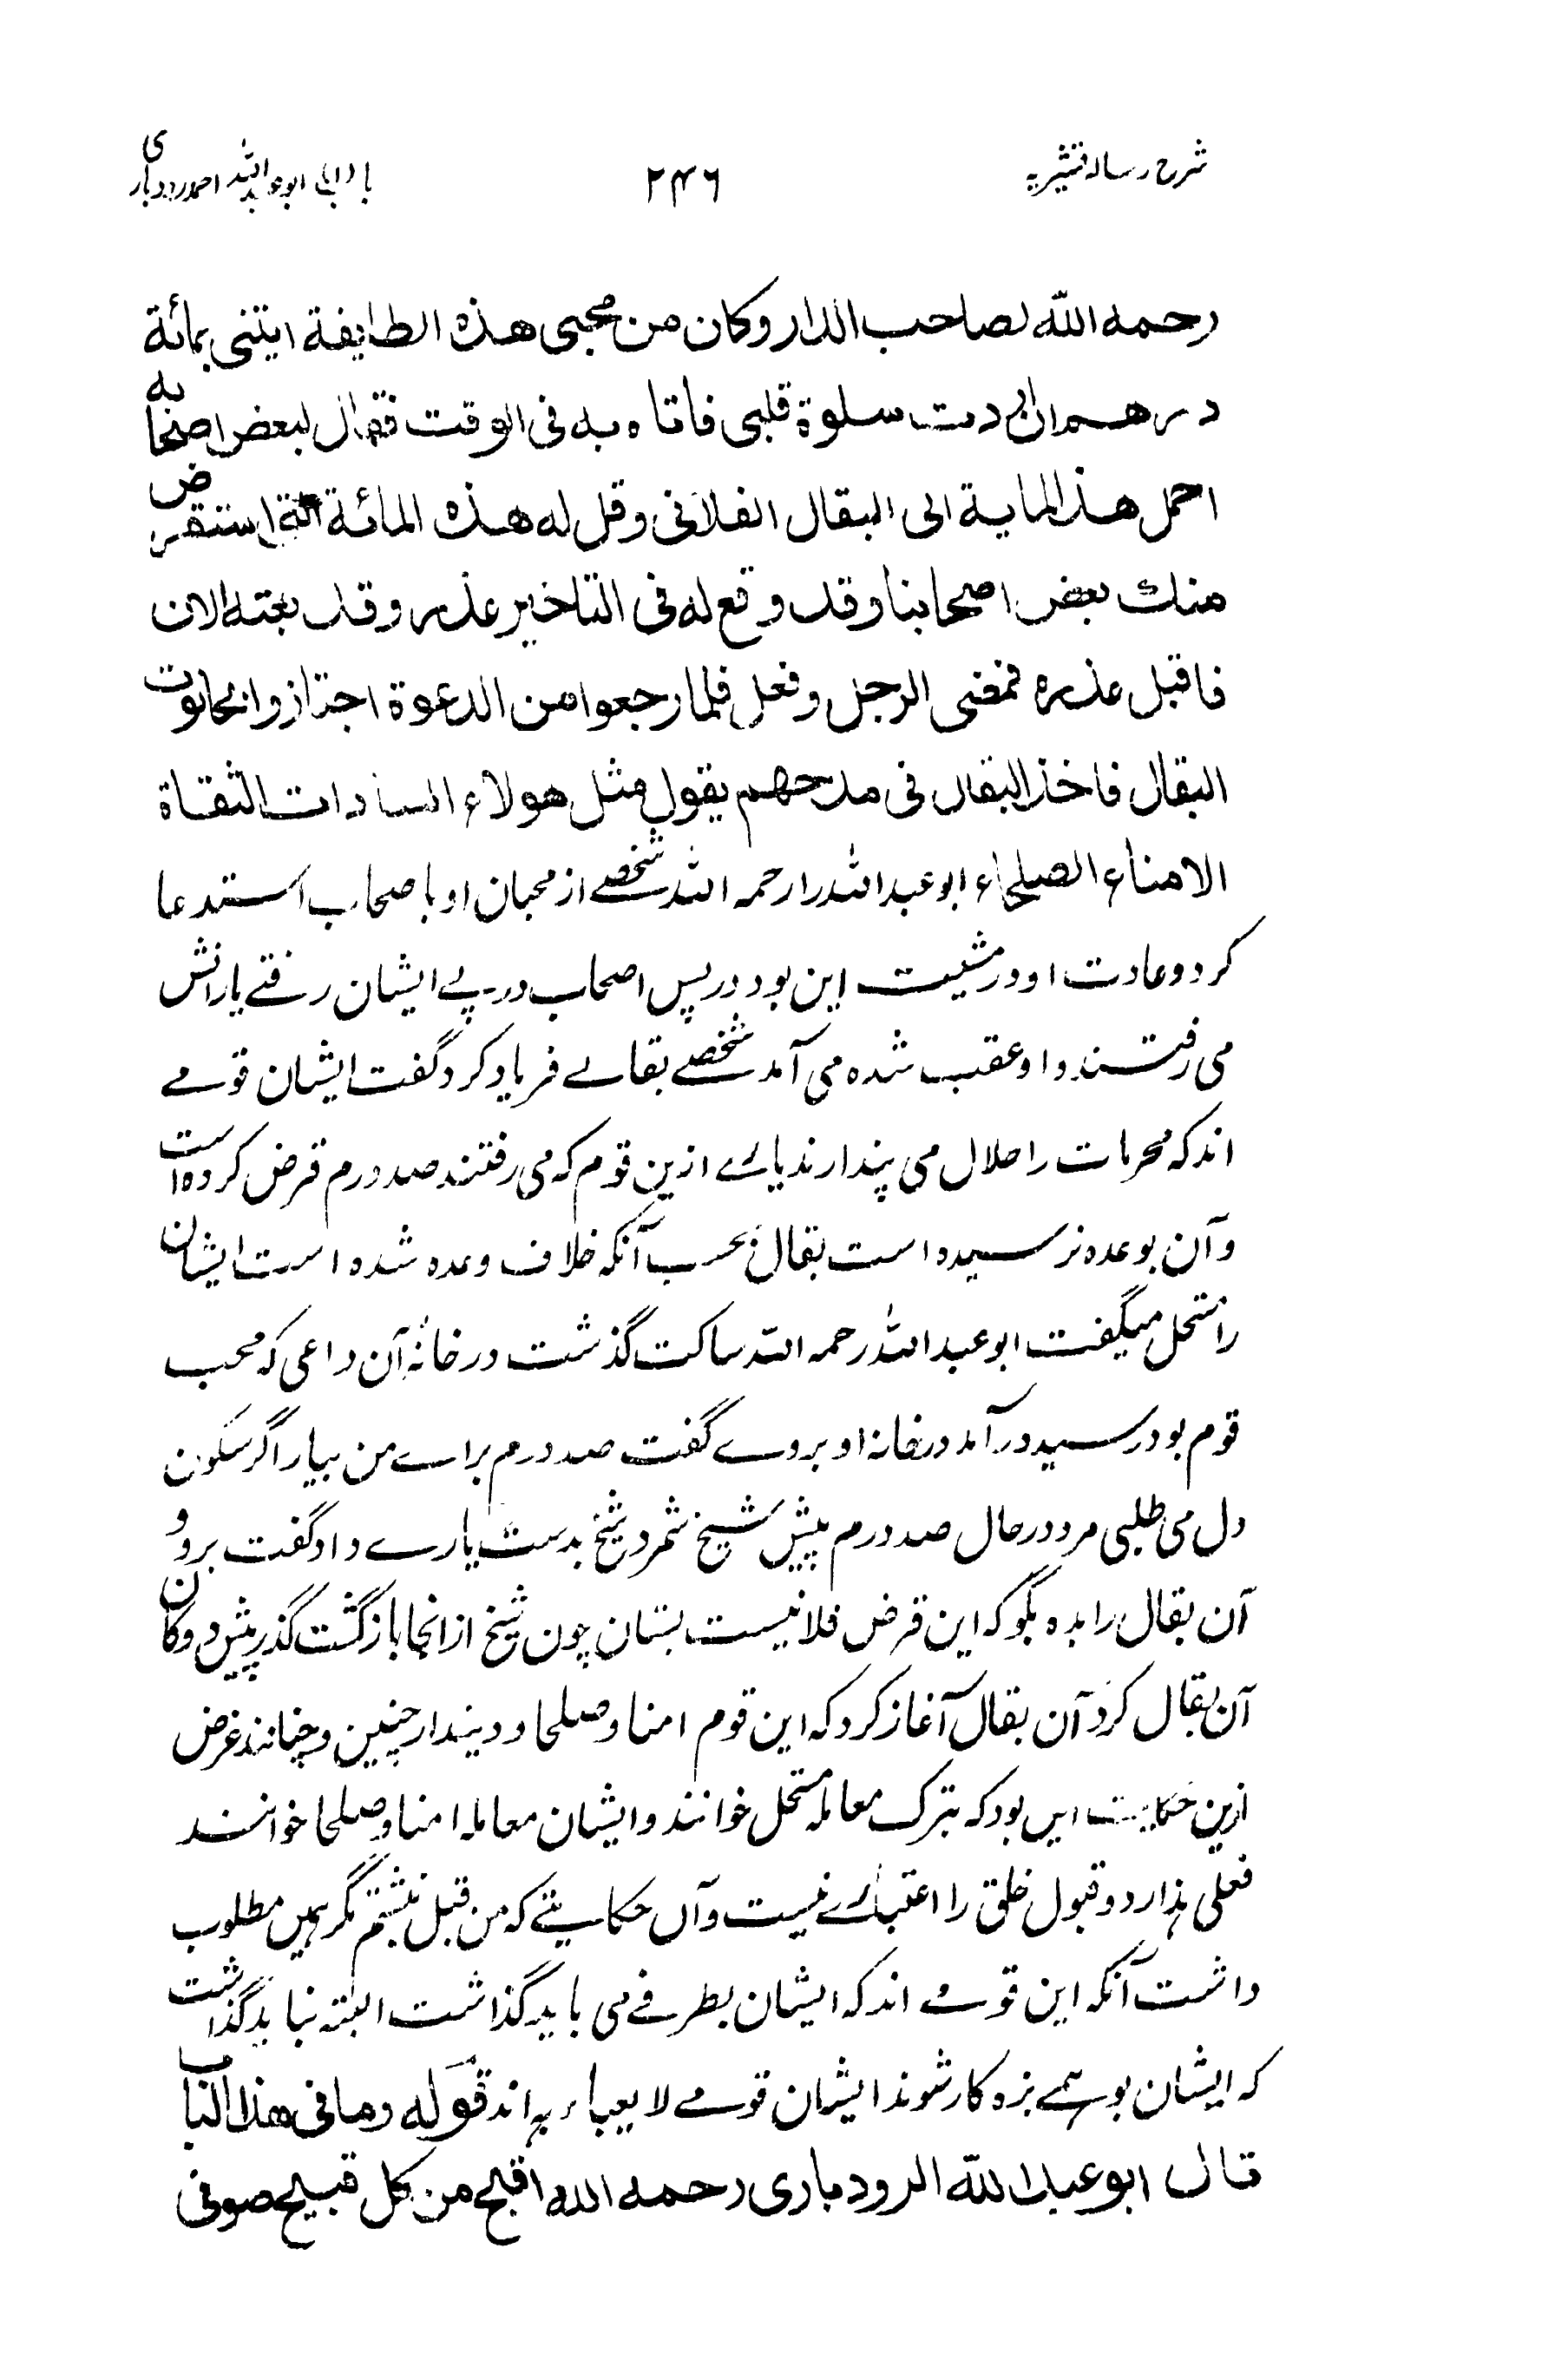 شرح رساله قشیریه
۲۴۶
ابو عبدالله احمد رودباری
رحمه الله لصاحب الدار وکان من محبی هذه الطایفة ایتنی بمائة
درهم ان اردت سلوة قلبی فاتاه به فی الوقت فقال لبعض اصحابه
احمل هذا المایة الی البقال الفلانی وقل له هذه المائة التی استقرض
منك بعض اصحابنا وقد وقع له فی التاخیر عذر وقد بعثه الان
فاقبل عذره فمضی الرجل وفعل فلما رجعوا من الدعوة اجتازوا بحانوت
البقال فاخذ البقال فی مدحهم یقول مثل هولاء السادات الثقاة
الامناء الصلحاء ابو عبدالله را رحمه الله شخصے از محبان او با صحاب استدعا
کرد و عادت او در مشیت این بود در پس اصحاب در پے ایشان رفتے یارانش
می رفتند و او عقب شده می آمد شخصے بقالے فریاد کرد گفت ایشان قومے
اند که محرمات را حلال می پندارند یارے ازین قوم که می رفتند صد درم قرض کرده است
و آن بوعده نرسیده است بقال بحسب آنکه خلاف وعده شده است ایشان
را مستحل میگفت ابو عبدالله رحمه الله ساکت گذشت در خانهٔ آن داعی که محب
قوم بود رسید در آمد در خانه او بروے گفت صد درم براے من بیار اگر سکون
دل می طلبی مرد در حال صد درم پیش شیخ شمرد شیخ بدست یارے داد گفت برو و
آن بقال را بده بگو که این قرض فلانیست بستان چون شیخ از انجا بازگشت گذر پیش دوکان
آن بقال کرد آن بقال آغاز کرد که این قوم امنا و صلحا و دیندار چنین و چنانند غرض
ازین حکایت این بود که بترک معامله مستحل خوانند و ایشان معامله امنا و صلحا خوانند
فعلی هذا رد و قبول خلق را اعتبارے نیست و آں حکایتے که من قبل نبشتم مگر همیں مطلوب
داشت آنکه این قومے اند که ایشان بطرفے می باید گذاشت البته نباید گذاشت
که ایشان بوسهے بزه کار شوند ایشان قومے لا یعباء به اند قوله وما فی هذا الباب
قال ابو عبد الله الرودباری رحمه الله اقبح من کل قبیح صوفی